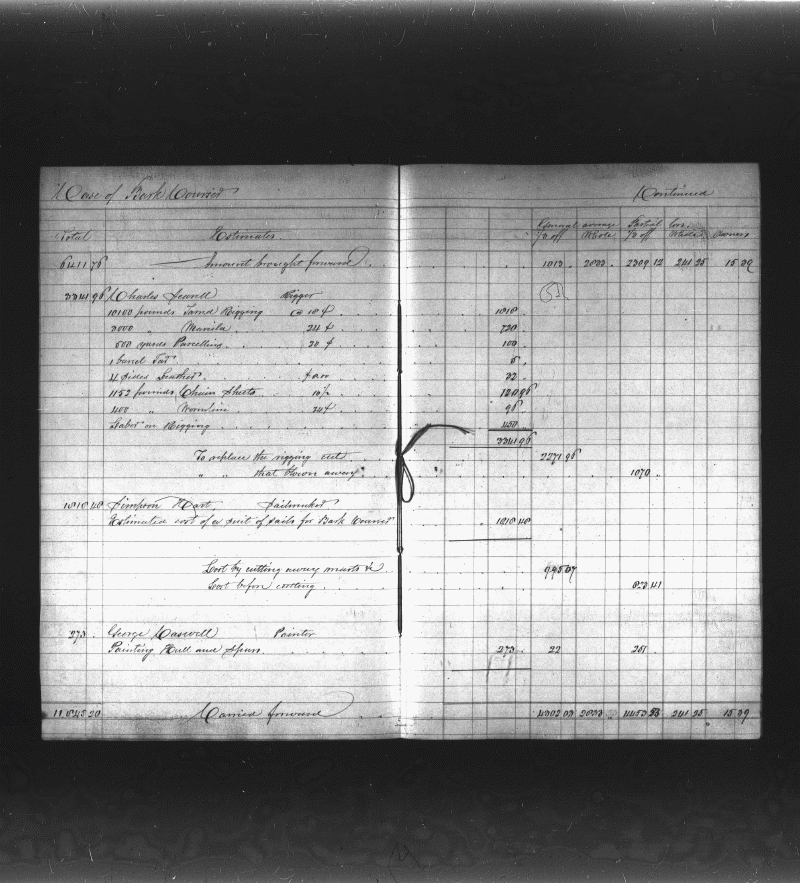 Case of Bark Courier Continued
General average Partial loss
Total Estimates ⅓ off Whole ⅓ off Whole Owners
6411 76 Amount brought forward 1013 . 2033 . 2309 12 241 25 15 39
3341 96 Charles Sewell Rigger
10100 pounds Tarred Rigging @ 18 ¢ 1818 .
3000 " Manila 24 ¢ 720
500 yards Parcelling 20 ¢ 100
1 barrel Tar 5 .
4 sides Leather 32 .
1152 pounds Chain Sheets 120 96
400 " Wormline 24 ¢ 96
Labor on Rigging 450
3341 96
To replace the rigging cut 2271 96
" " that blown away 1070
1818 48 Simpson Hart, Sailmaker
Estimated cost of a suit of sails for Bark Courier 1818 48
Lost by cutting away masts &c 995 07
Lost before cutting 823 41
273 . George Caswell Painter
Painting Hull and Spars 273 . 22 251
11845 20 Carried forward 4302 03 2033 4453 53 241 25 15 39